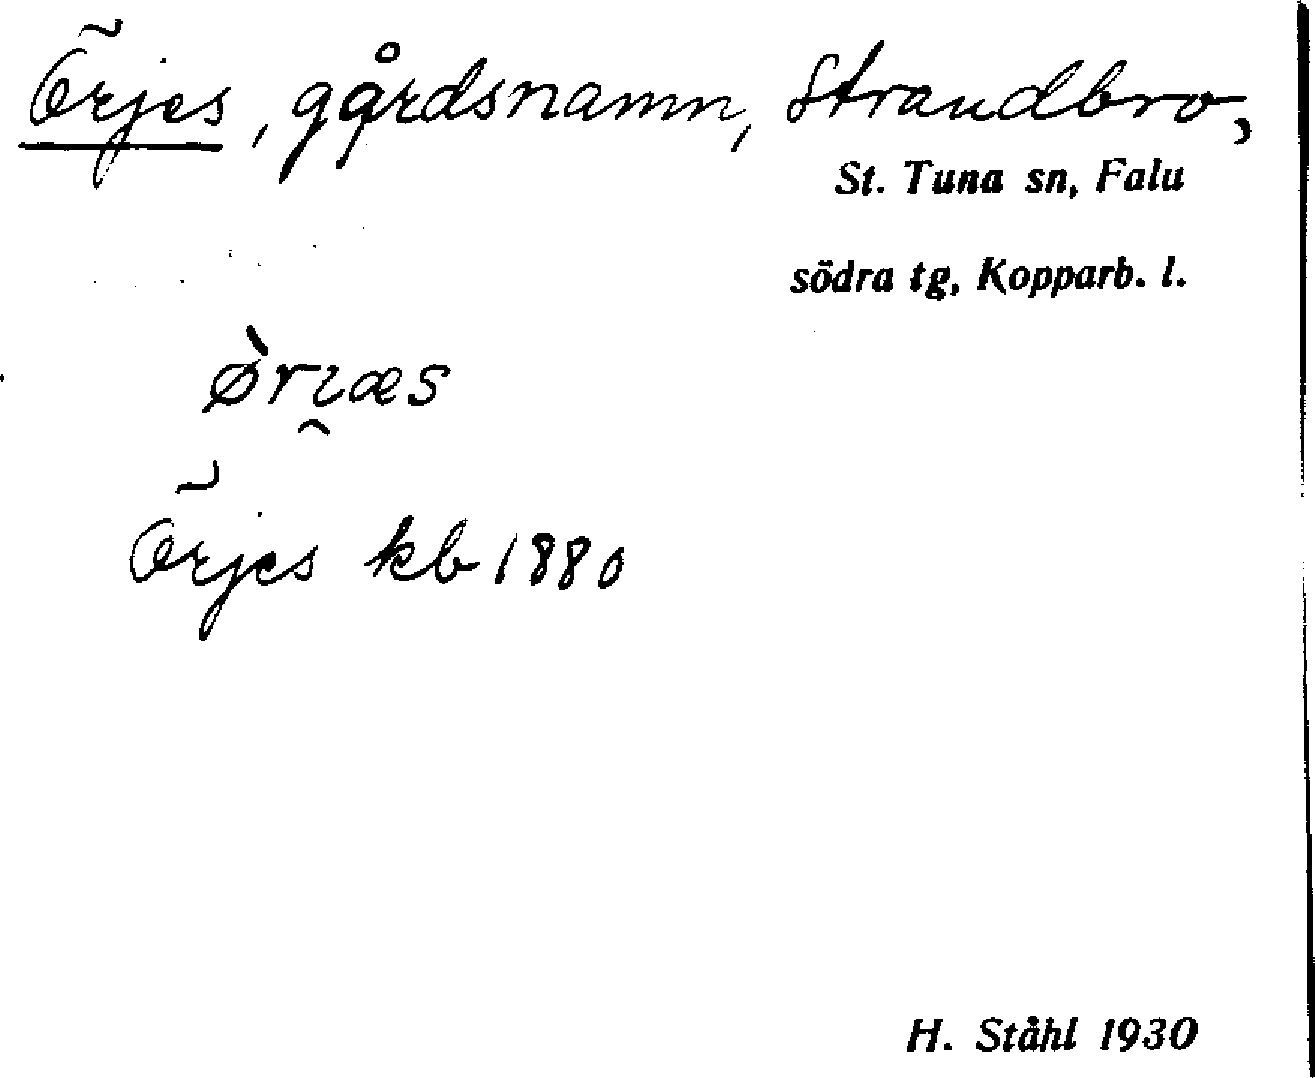 Örjes, gårdsnamn, Strandbro,
St. Tuna sn, Falu
södra tg, Kopparb. l.
ø̀ri̯æs
Örjes kb 1880
H. Ståhl 1930